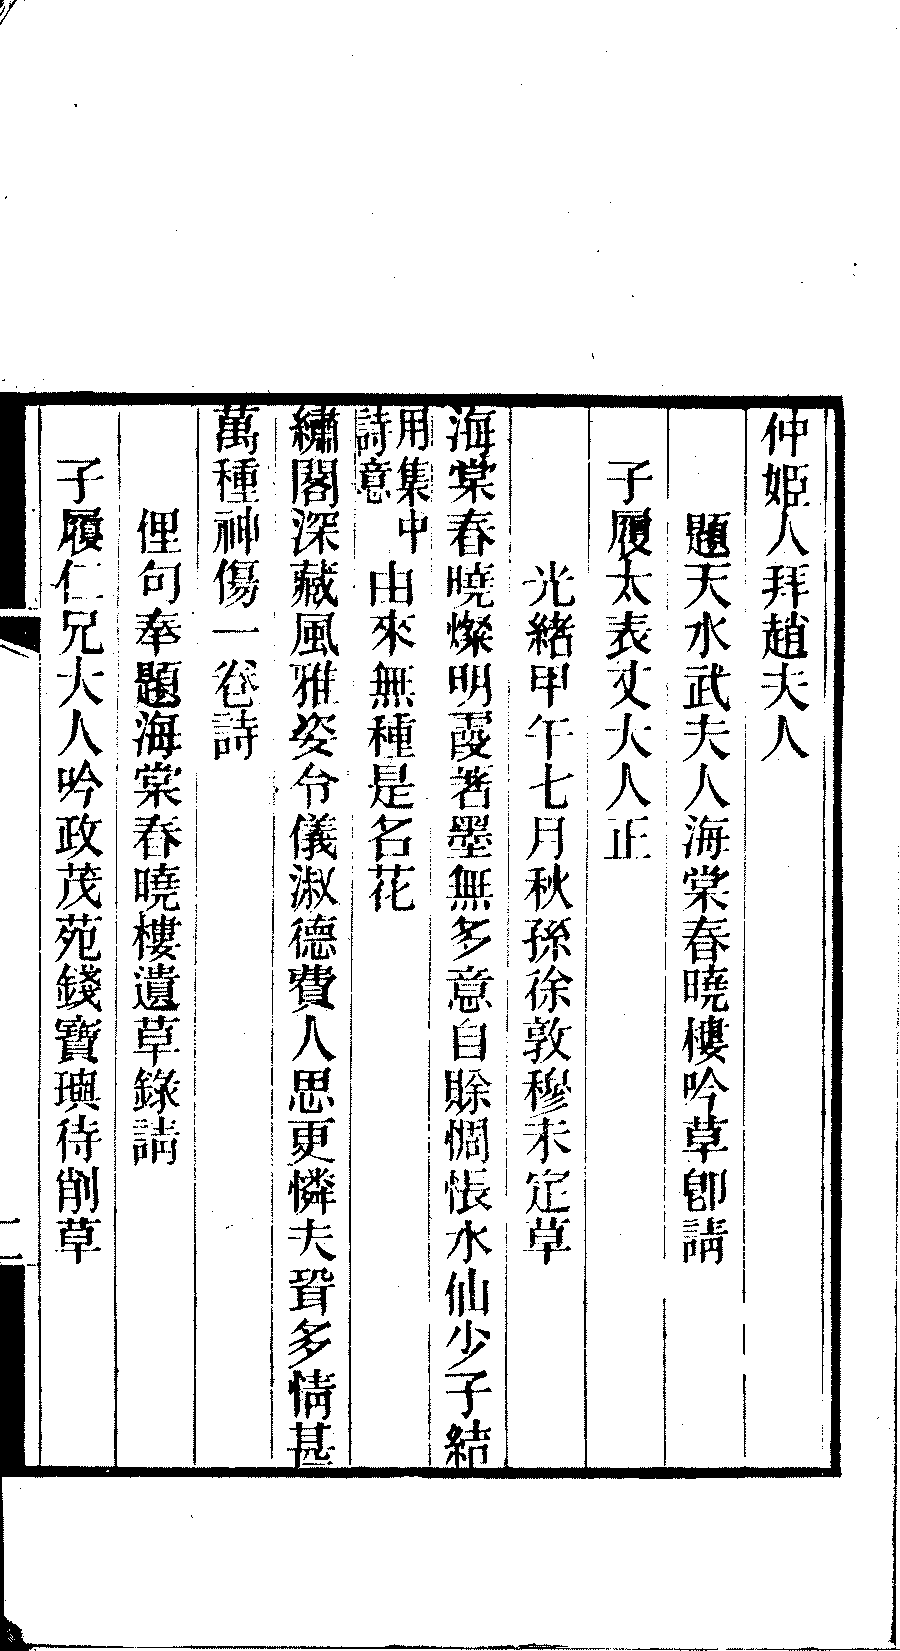 仲姬人拜趙夫人
題天水武夫人海棠春曉樓吟草卽請
子履太表丈大人正
光緒甲午七月秋孫徐敦穆未定草
海棠春曉燦明霞著墨無多意自賒惆悵水仙少子結
用集中
詩意
由來無種是名花
繡閣深藏風雅姿令儀淑德費人思更憐夫壻多情甚
萬種神傷一卷詩
俚句奉題海棠春曉樓遺草錄請
子履仁兄大人吟政茂苑錢寶璵待削草
二